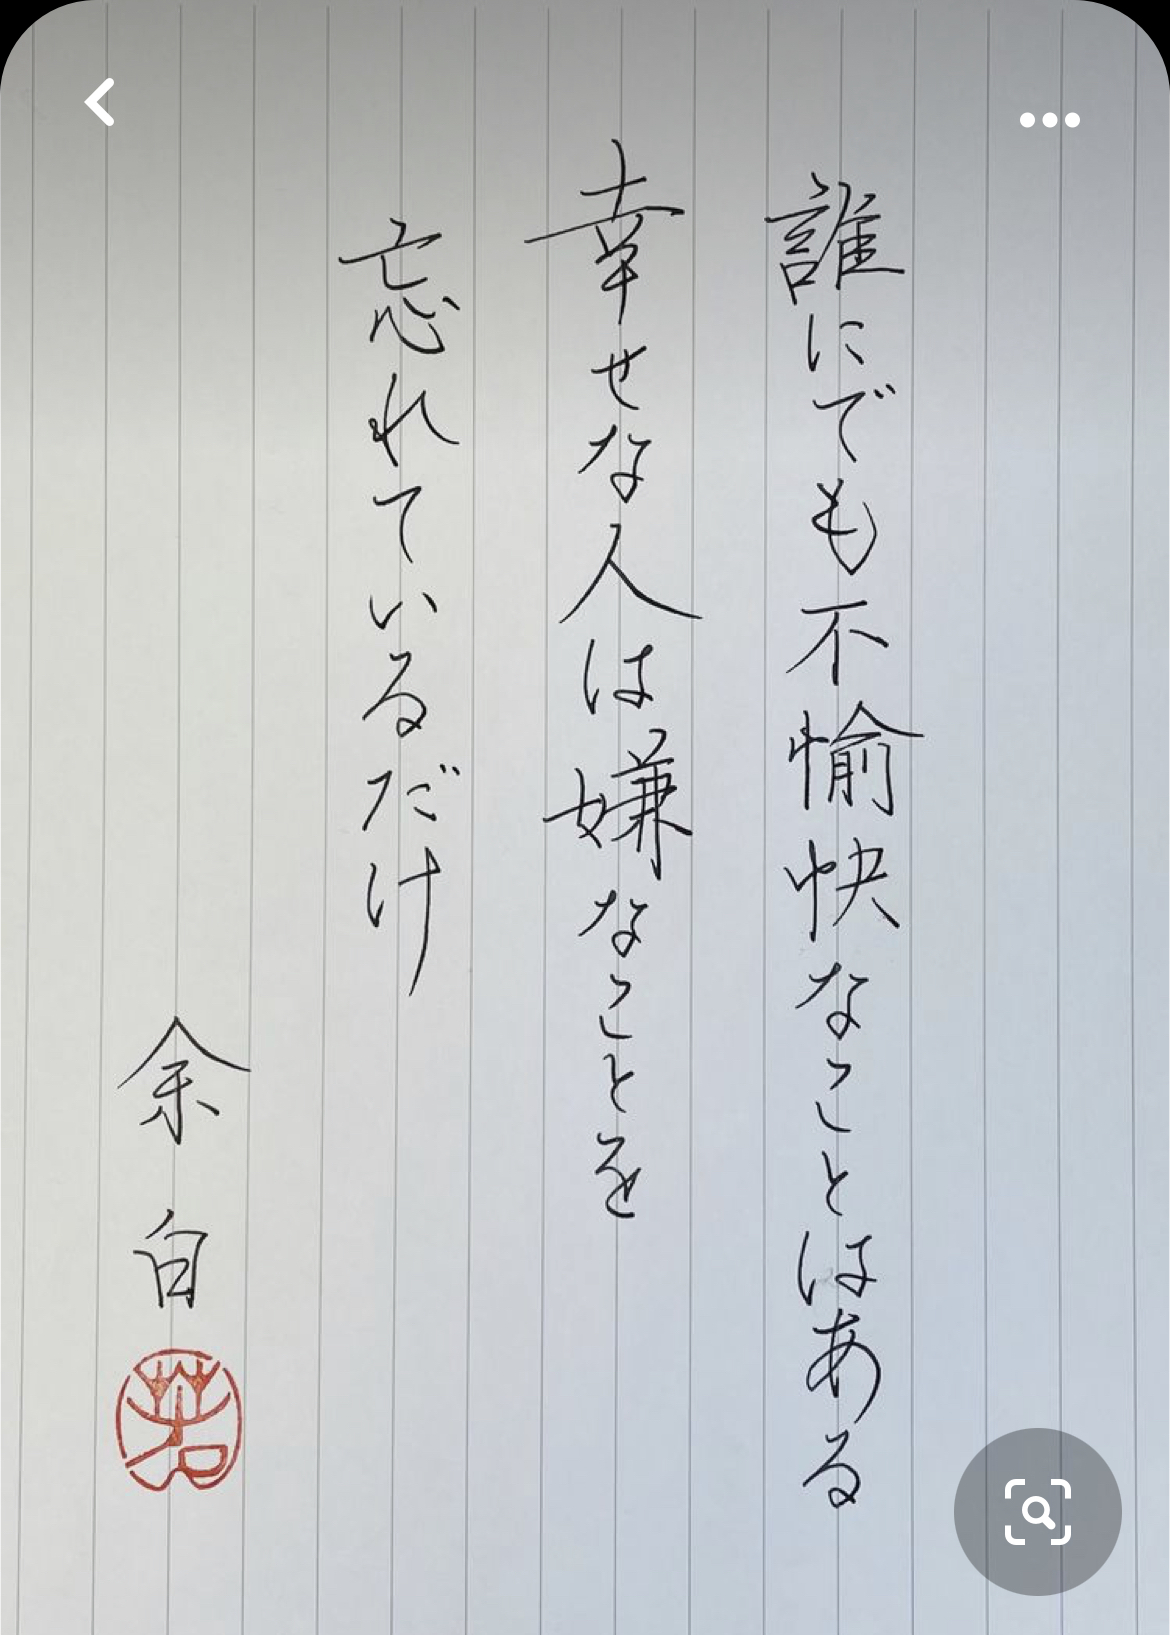 誰にでも不愉快なことはある
幸せな人は嫌なことを
忘れているだけ
余白